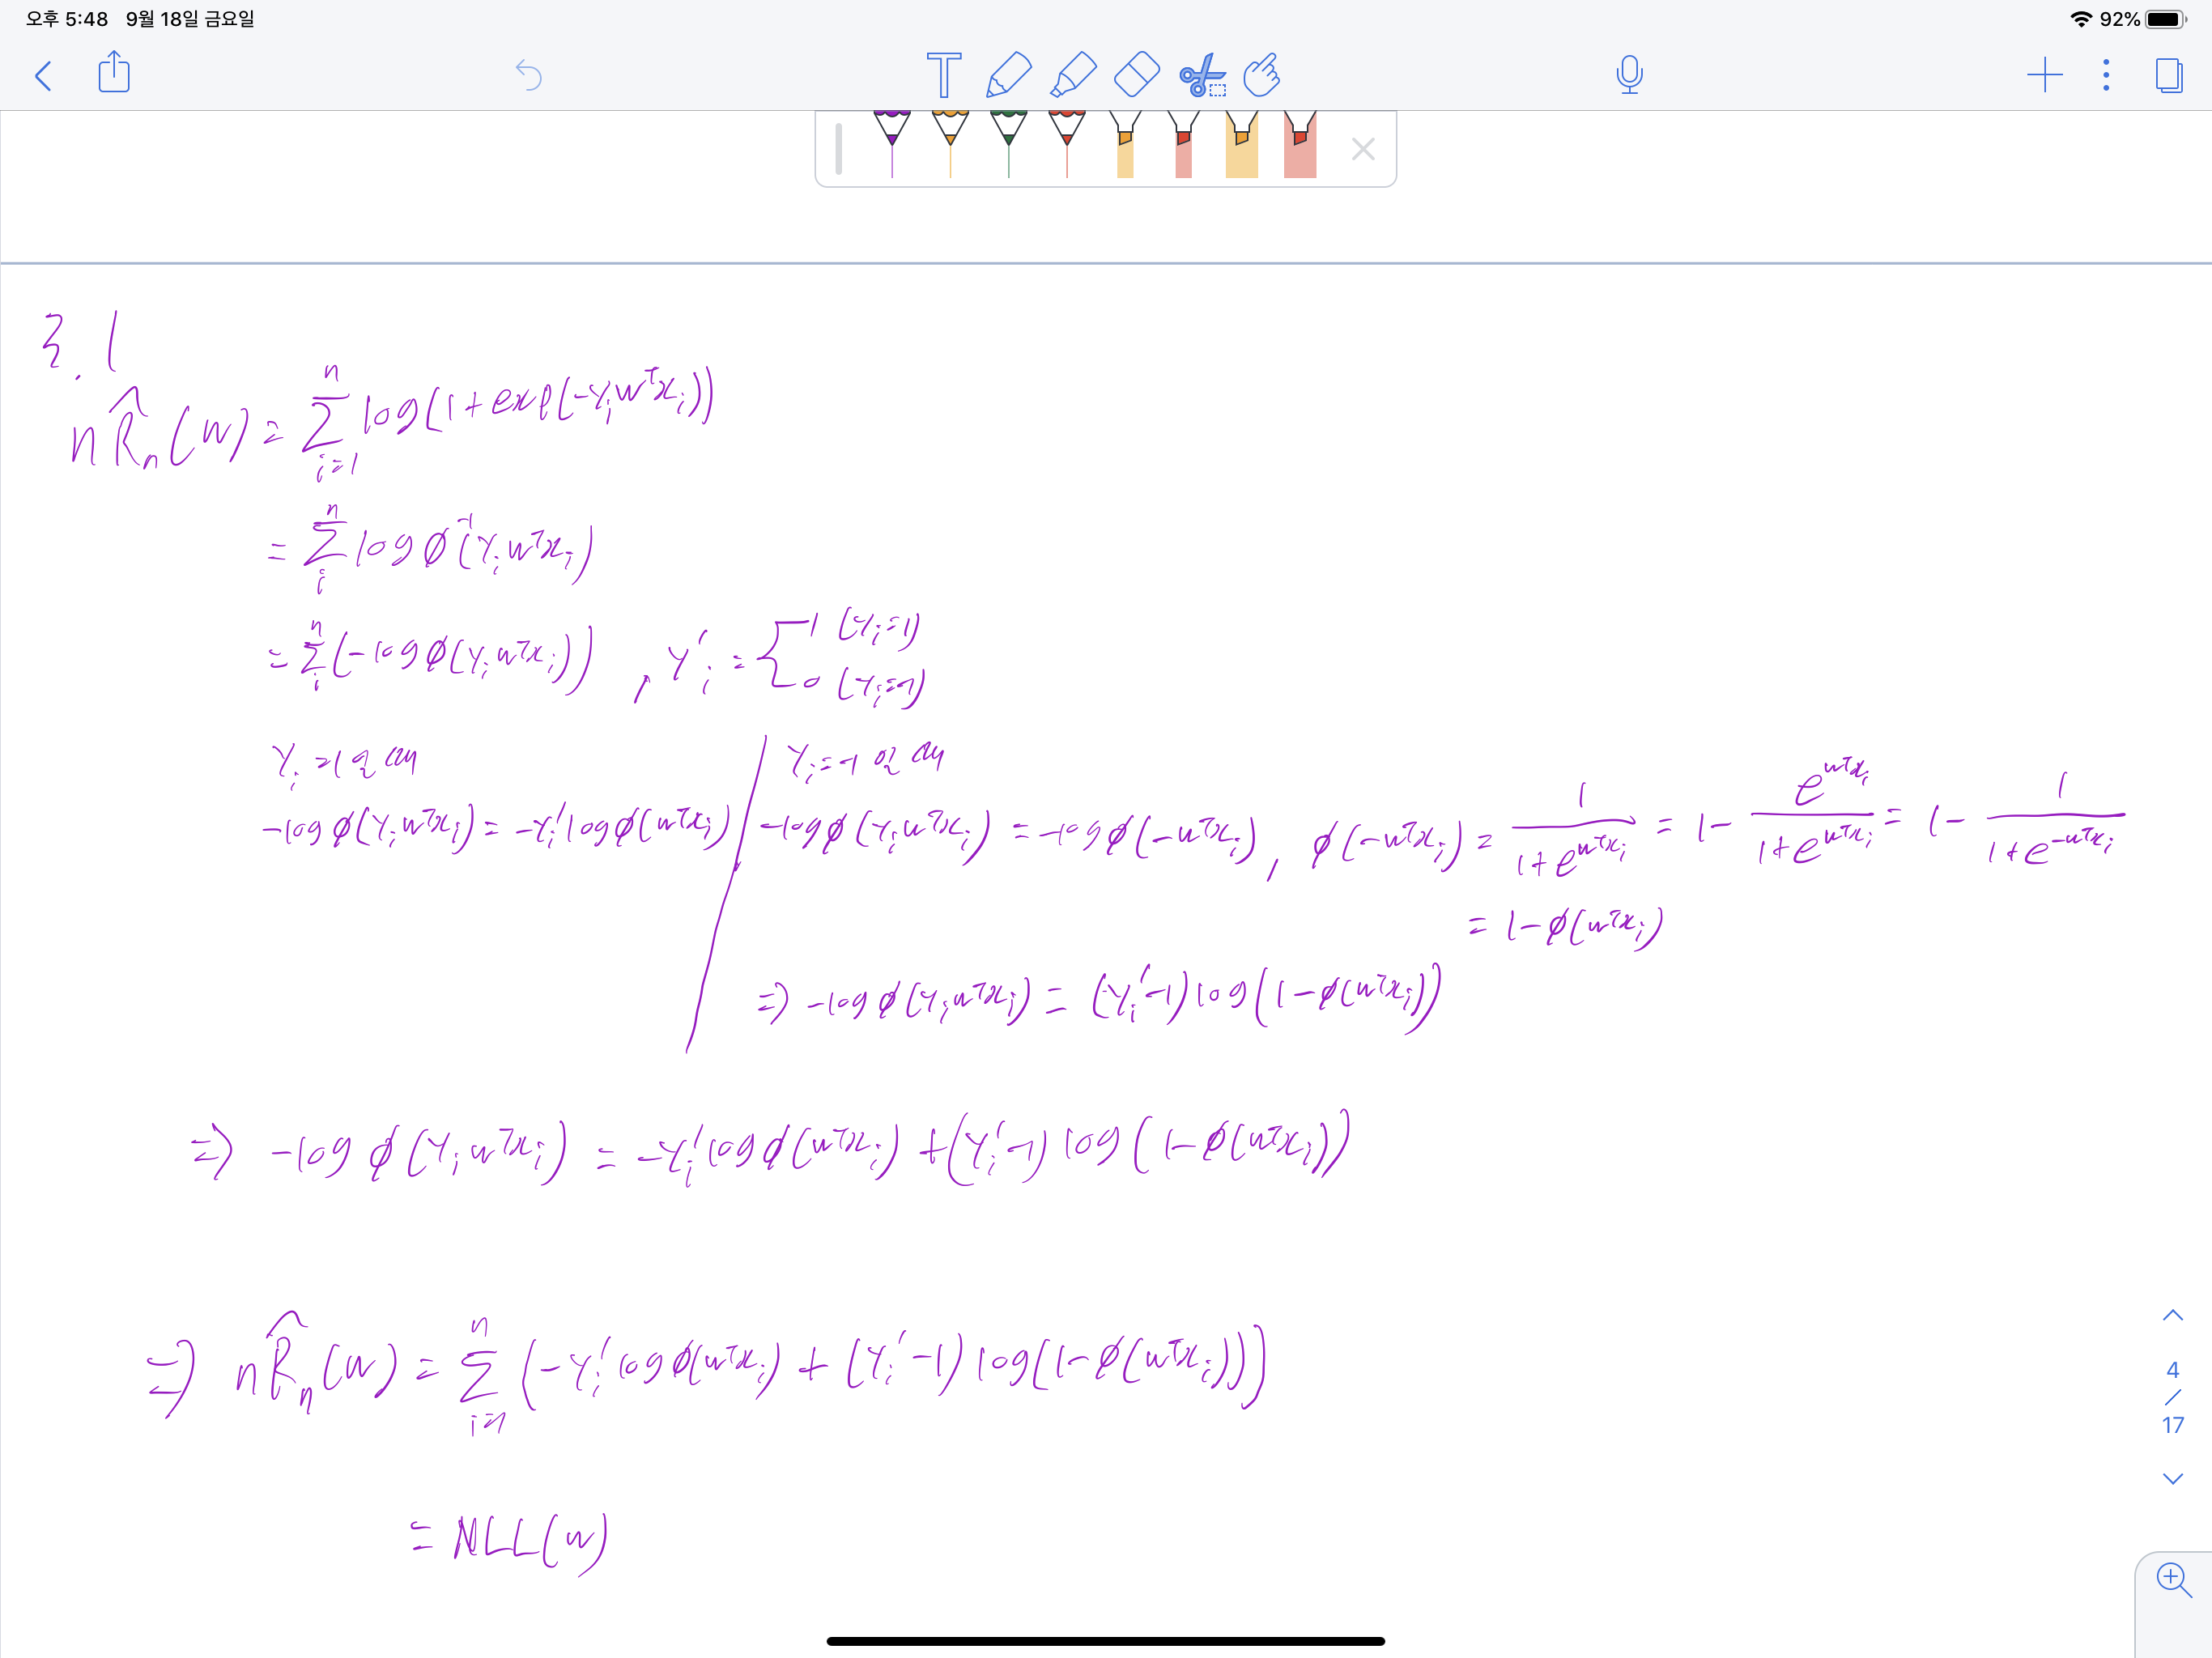 오후 5:48 9월 18일 금요일 92%
3.1
nR̂ₙ(w) = Σ_{i=1}^{n} log(1+exp(-Yᵢwᵀxᵢ))
= Σ_{i}^{n} log φ⁻¹(Yᵢwᵀxᵢ)
= Σ_{i}^{n} (-log φ(Yᵢwᵀxᵢ)) , Yᵢ' = { 1 (Yᵢ=1)
0 (Yᵢ=-1)
Yᵢ=1일 때
-log φ(Yᵢwᵀxᵢ) = -Yᵢ' log φ(wᵀxᵢ)
Yᵢ=-1일 때
-log φ(Yᵢwᵀxᵢ) = -log φ(-wᵀxᵢ) , φ(-wᵀxᵢ) = 1/(1+e^{wᵀxᵢ}) = 1 - e^{wᵀxᵢ}/(1+e^{wᵀxᵢ}) = 1 - 1/(1+e^{-wᵀxᵢ})
= 1-φ(wᵀxᵢ)
⇒ -log φ(Yᵢwᵀxᵢ) = (Yᵢ'-1) log(1-φ(wᵀxᵢ))
⇒ -log φ(Yᵢwᵀxᵢ) = -Yᵢ' log φ(wᵀxᵢ) + (Yᵢ'-1) log(1-φ(wᵀxᵢ))
⇒ nR̂ₙ(w) = Σ_{i=1}^{n} (-Yᵢ' log φ(wᵀxᵢ) + (Yᵢ'-1) log(1-φ(wᵀxᵢ)))
= NLL(w)
4
/
17